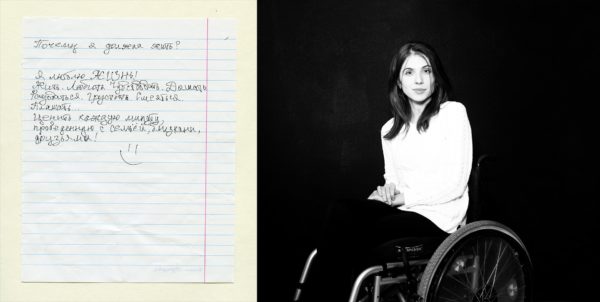 Почему я должна жить?
Я люблю ЖИЗНЬ!
Жить. Любить. Чувствовать. Дышать.
Радоваться. Грустить. Смеяться.
Плакать...
Ценить каждую минуту,
проведенную с семьёй, близкими,
друзьями!